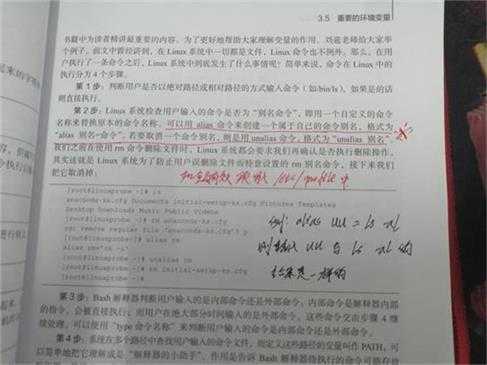 3.5 重要的环境变量
书籍中为读者精讲最重要的内容。为了更好地帮助大家理解变量的作用，刘遄老师给大家举
个例子。前文中曾经讲到，在Linux系统中一切都是文件，Linux命令也不例外。那么，在用
户执行了一条命令之后，Linux系统中到底发生了什么事情呢？简单来说，命令在Linux中的
执行分为4个步骤。
第1步：判断用户是否以绝对路径或相对路径的方式输入命令（如/bin/ls），如果是的话
则直接执行。
第2步：Linux系统检查用户输入的命令是否为“别名命令”，即用一个自定义的命令
名称来替换原本的命令名称。可以用alias命令来创建一个属于自己的命令别名，格式为
“alias 别名=命令”。若要取消一个命令别名，则是用unalias命令，格式为“unalias 别名”。
我们之前在使用rm命令删除文件时，Linux系统都会要求我们再确认是否执行删除操作，
其实这就是Linux系统为了防止用户误删除文件而特意设置的rm别名命令，接下来我们
把它取消掉：
[root@linuxprobe ~]# ls
anaconda-ks.cfg Documents initial-setup-ks.cfg Pictures Templates
Desktop Downloads Music Public Videos
[root@linuxprobe ~]# rm anaconda-ks.cfg
rm: remove regular file 'anaconda-ks.cfg'? y
[root@linuxprobe ~]# alias rm
alias rm='rm -i'
[root@linuxprobe ~]# unalias rm
[root@linuxprobe ~]# rm initial-setup-ks.cfg
[root@linuxprobe ~]#
例: alias uu = ls -al
结果是一样的
第3步：Bash解释器判断用户输入的是内部命令还是外部命令。内部命令是解释器内部
的指令，会被直接执行；而用户在绝大部分时间输入的是外部命令，这些命令交由步骤4继
续处理。可以使用“type命令名称”来判断用户输入的命令是内部命令还是外部命令。
第4步：系统在多个路径中查找用户输入的命令文件，而定义这些路径的变量叫作PATH，可
以简单地把它理解成是“解释器的小助手”，作用是告诉Bash解释器待执行的命令可能存放